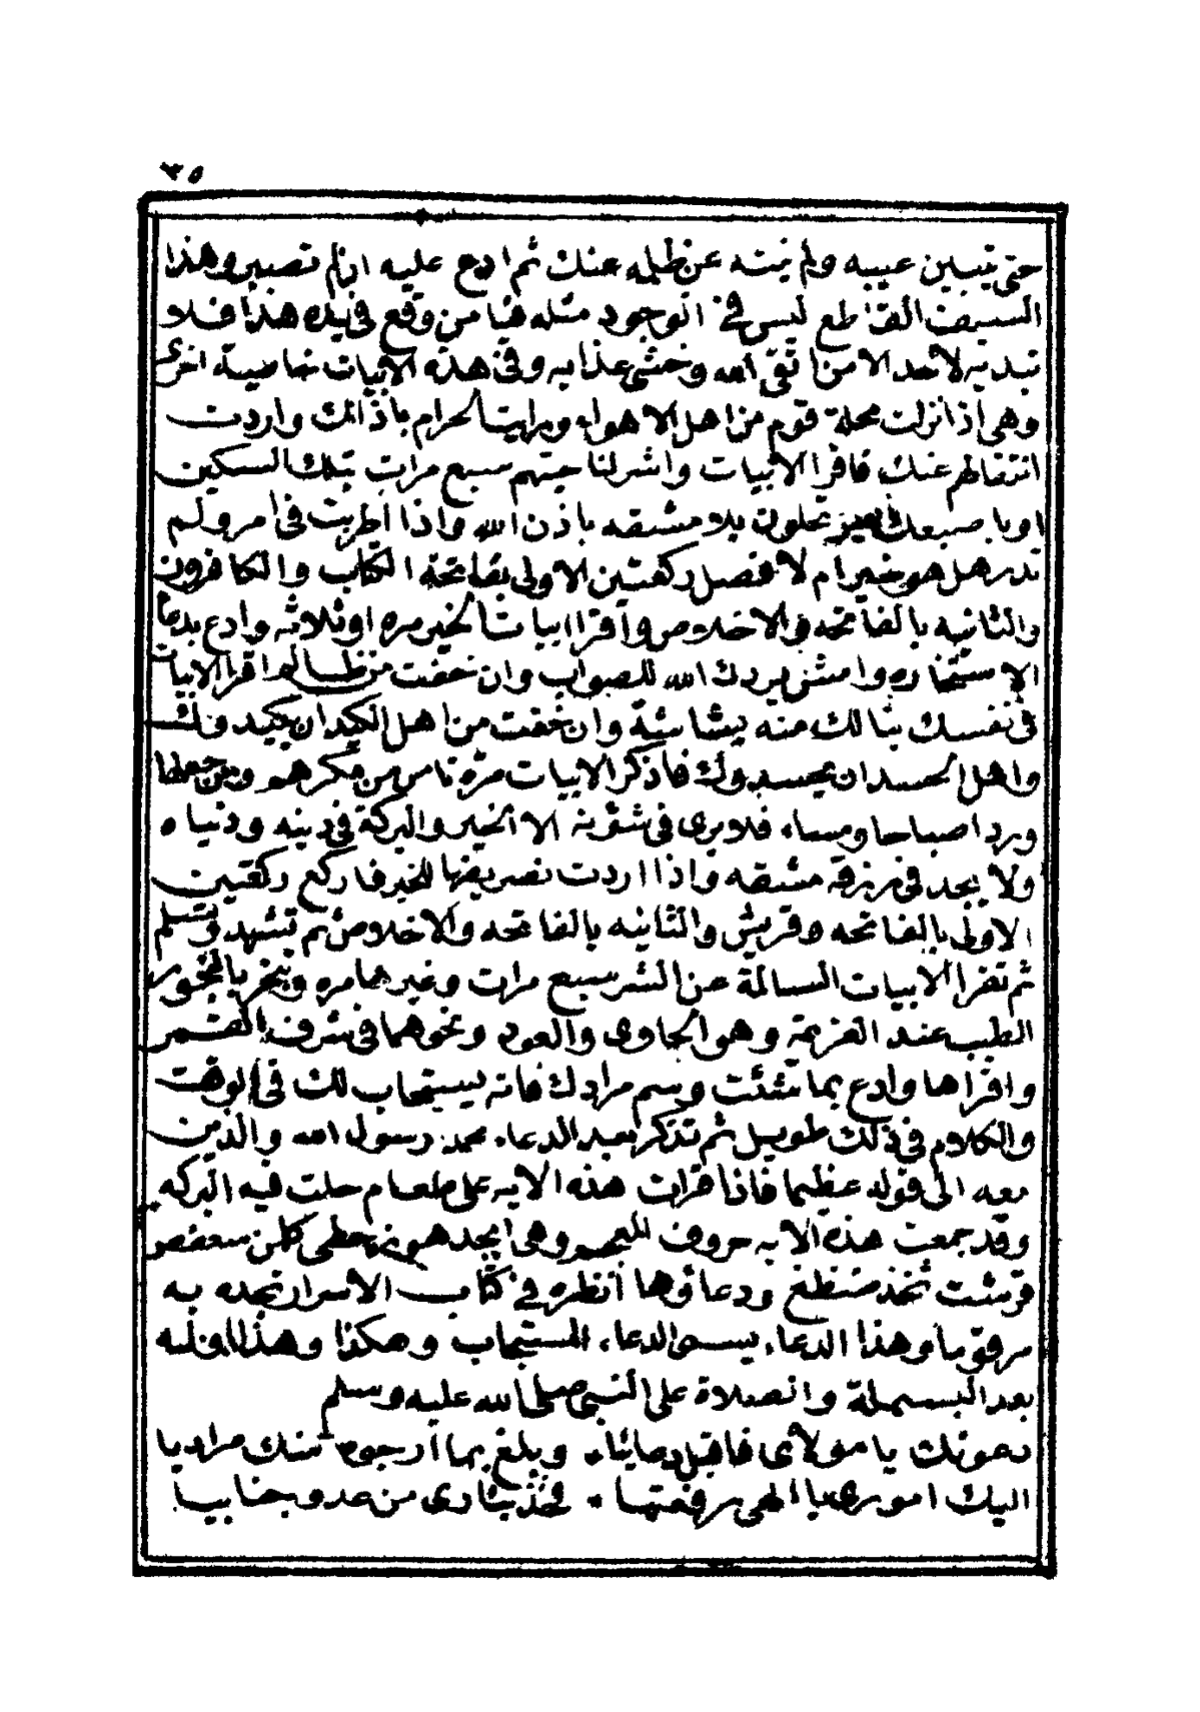 ٣٥
حتى يتبين عيبه ولم ينته عن ظلمه عنك ثم ادع عليه ان لم تصبر وهذا
السيف القاطع ليس في الوجود مثله هنيا من وقع في يده هذا فلا
تبديه لاحد الا من اتقى الله وخشى عذابه وفي هذه الابيات خاصية اخرى
وهى اذا نزلت محلة قوم من اهل الاهواء ورايت الحرام باذائك واردت
انتقالهم عنك فاقرا الابيات واشر لناحيتهم سبع مرات بتلك السكين
او باصبعك يحلون بلا مشقه باذن الله واذا اطربت في امر ولم
تدر هل هو خير ام لا فصل ركعتين الاولى بفاتحة الكتاب والكافرون
والثانيه بالفاتحه والاخلاص واقرا ابيات الخير مره او ثلاثه وادع بدعا
الاستخاره وامشى يردك الله للصواب وان خفت من ظالم اقرا الابيات
في نفسك ينالك منه بشاشة وان خفت من اهل الكيد ان يكيدونك
واهل الحسد ان يحسدوك فاذكر الابيات مرة تامن من مكرهم ومن جعلها
وردا صباحا ومساء فلا يرى في شؤنه الا الخير والبركة في دينه ودنياه
ولا يجد في رزقه مشقه واذا اردت تصريفها للخير فاركع ركعتين
الاولى بالفاتحه وقريش والثانيه بالفاتحه والاخلاص ثم تشهد وتسلم
ثم تقرا الابيات السالمة عن الشر سبع مرات وغيرها مره وتبخر بالبخور
الطيب عند العزيمة وهو الجاوى والعود ونحوهما في شرف القمر
واقراها وادع بما شئت وسم مرادك فانه يستجاب لك في الوقت
والكلام في ذلك طويل ثم تذكر بعد الدعاء محمد رسول الله والذين
معه الى قوله عظيما فاذا قرات هذه الايه على طعام حلت فيه البركه
وقد جمعت هذه الايه حروف المعجم وهى ابجد هوز حطى كلمن سعفص
قرشت ثخذ ضظغ ودعاؤها انظره في كتاب الاسرار تجده به
مرقوما وهذا الدعاء يسمى الدعاء المستجاب وهكذا وهذا
بعد البسملة والصلاة على النبى صلى الله عليه وسلم
دعوتك يا مولاى فاقبل دعائيا * وبلغ بما ارجوه منك مراديا
اليك امورى يا الهى رفعتها * فخذ بثارى من عدو